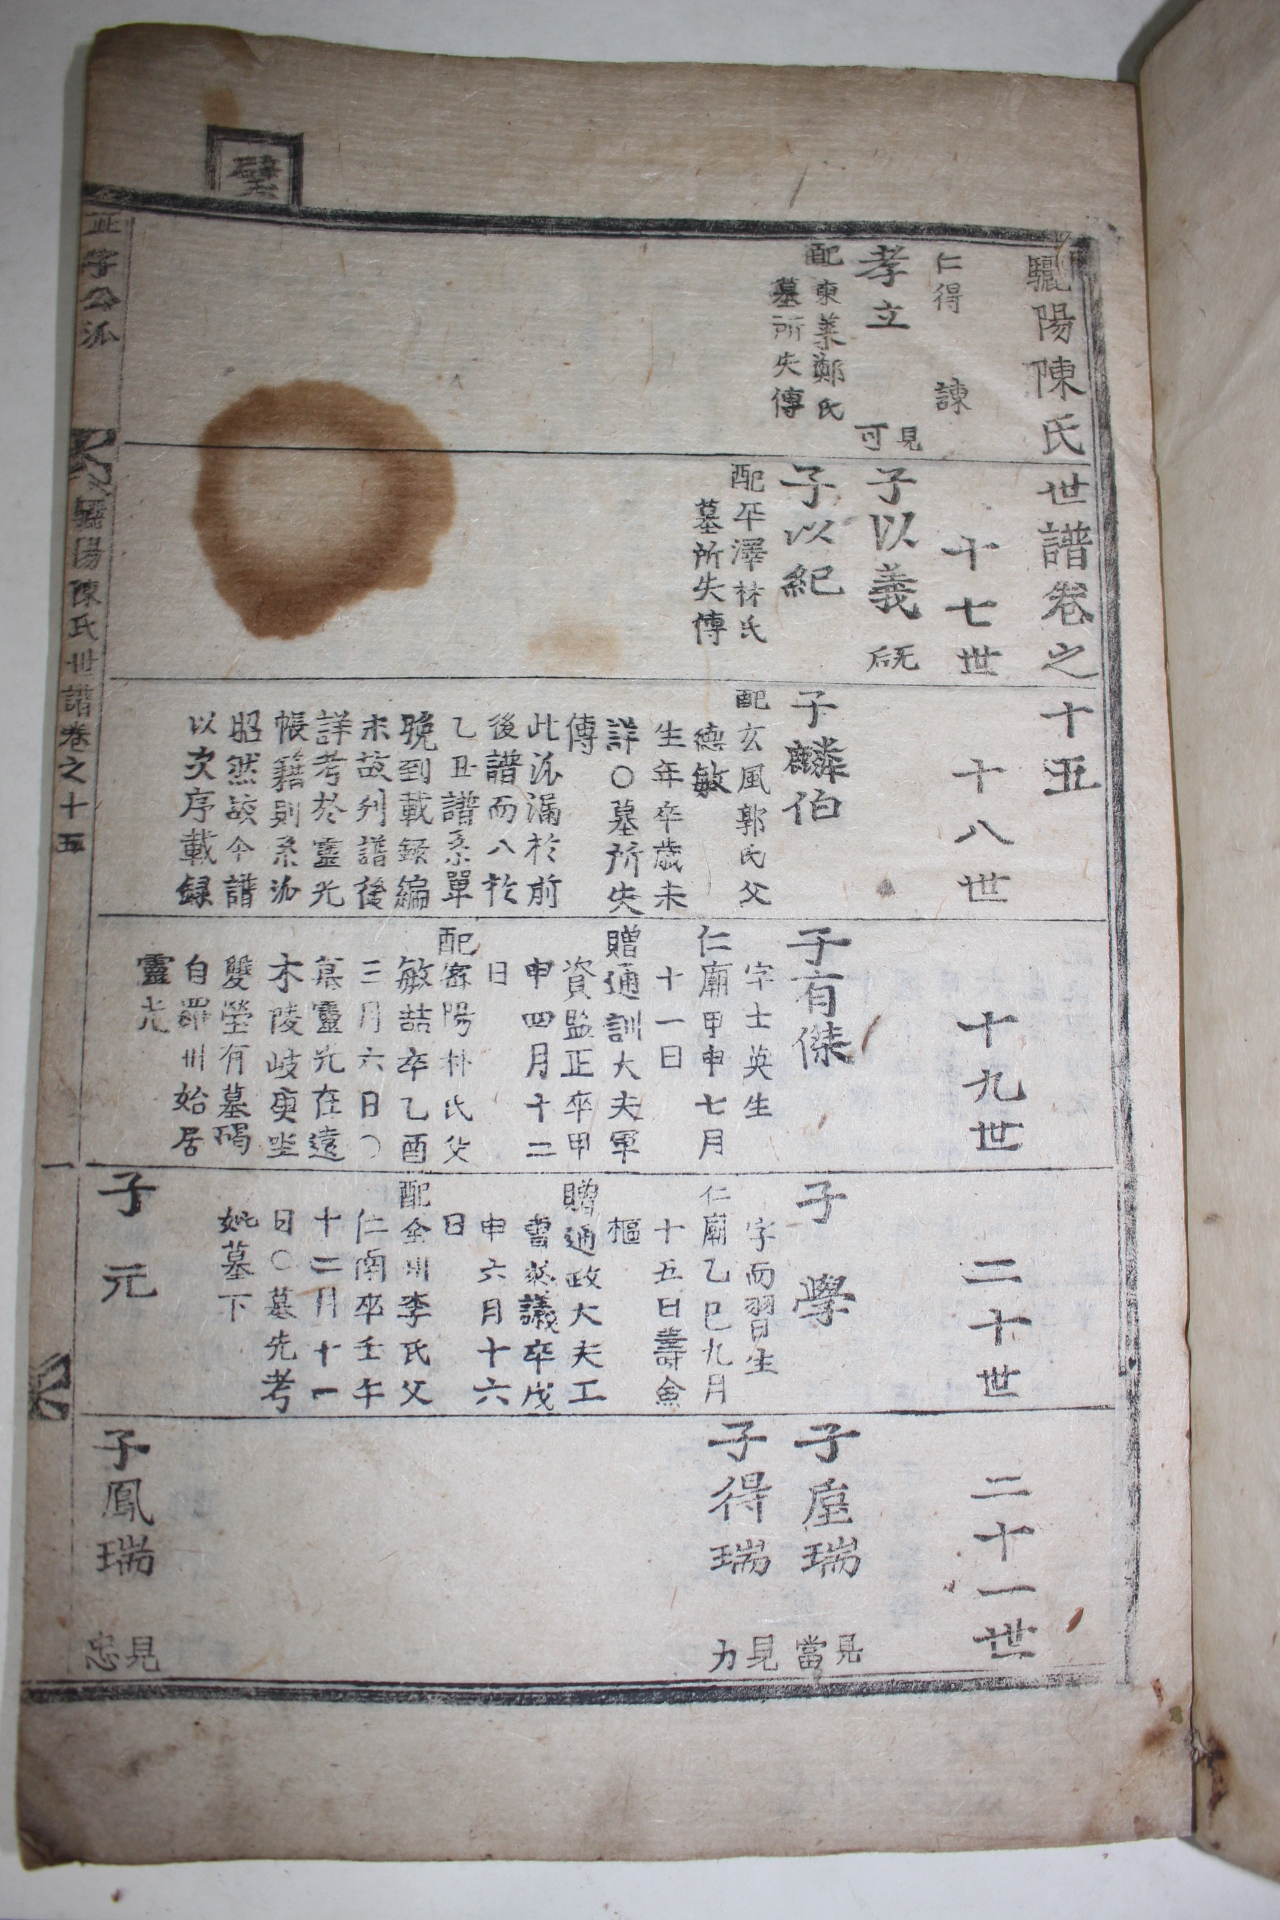 驪陽陳氏世譜卷之十五
仁得 諫
孝立 見可
配東萊鄭氏
墓所失傳
十七世
子以義 后无
子以紀
配平澤林氏
墓所失傳
十八世
子麟伯
配玄風郭氏父
德敏
生年卒歲未
詳○墓所失
傳
此派漏於前
後譜而八於
乙丑譜系單
晚到載錄編
末故列譜後
詳考於靈光
帳籍則系派
昭然故今譜
以次序載録
十九世
子有傑
字士英生
仁廟甲申七月
十一日
贈通訓大夫軍
資監正卒甲
申四月十二
日
配密陽朴氏父
敏喆卒乙酉
三月六日○
墓靈光在遠
木陵岐庚坐
雙塋有墓碣
自羅州始居
靈光
二十世
子學
字而習生
仁廟乙巳九月
十五日壽僉
樞
贈通政大夫工
曹參議卒戊
申六月十六
日
配全州李氏父
仁南卒壬午
十二月十一
日○墓先考
妣墓下
子元
二十一世
子屋瑞 見當
子得瑞 見力
子鳳瑞 見忠
璧
正字公派
驪陽陳氏世譜卷之十五
一